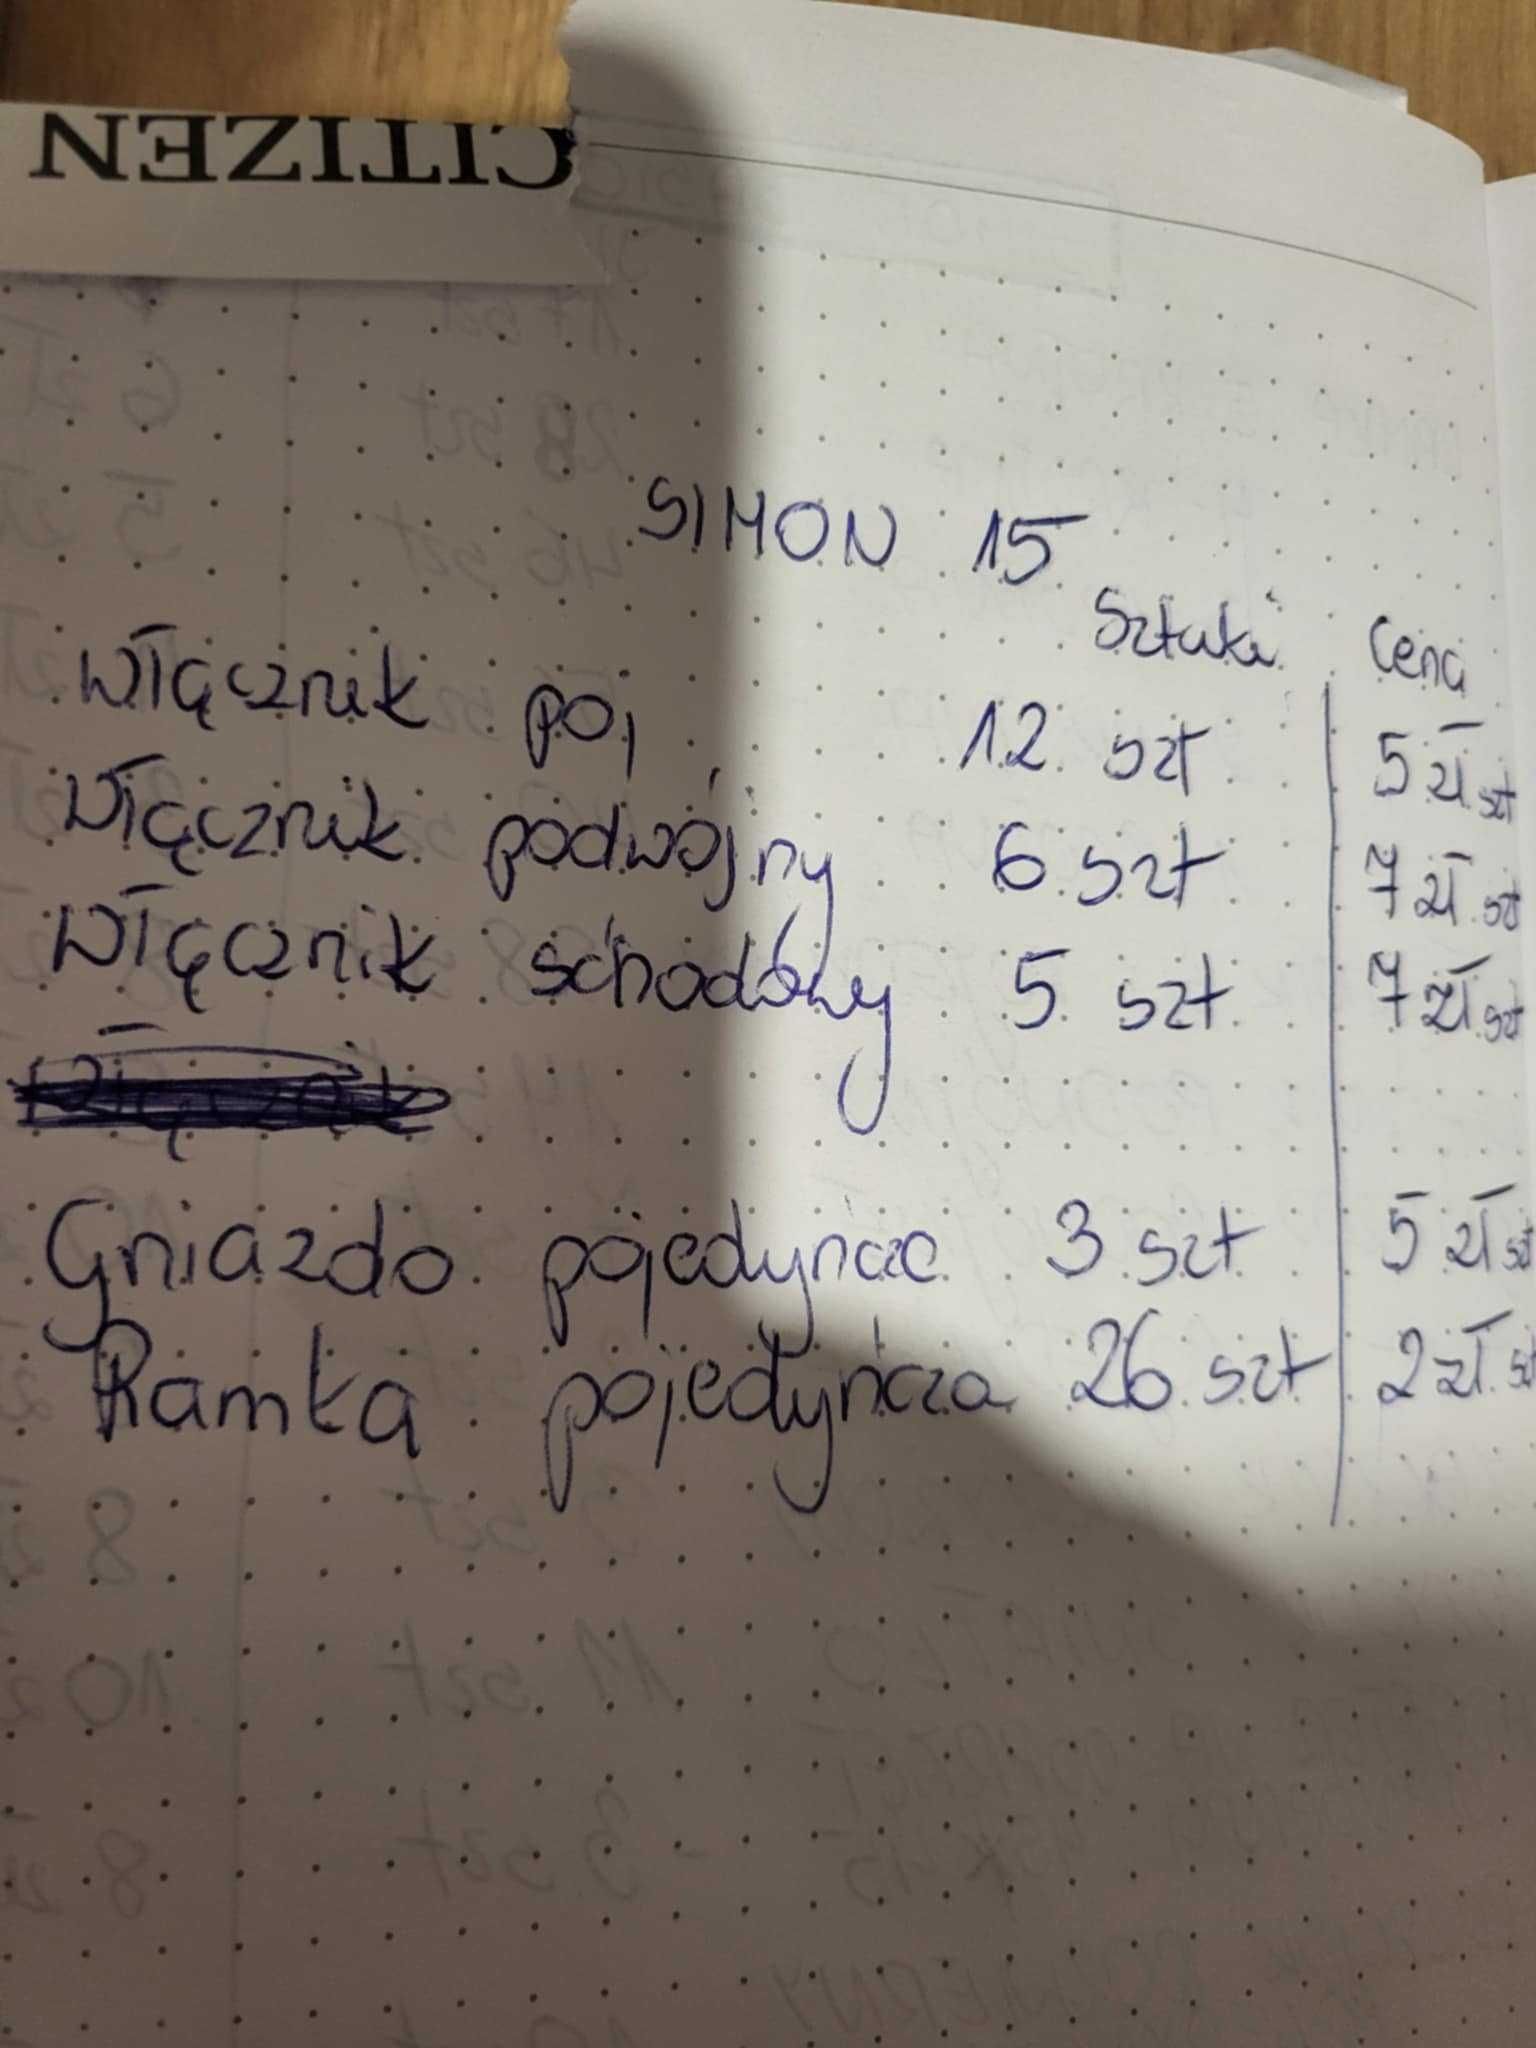 CITIZEN
SIMON 15
Sztuki Cena
Włącznik poj 12 szt 5 zł szt
Włącznik podwójny 6 szt 7 zł szt
Włącznik schodowy 5 szt 7 zł szt
Gniazdo pojedyńcze 3 szt 5 zł szt
Ramka pojedyńcza 26 szt 2 zł szt